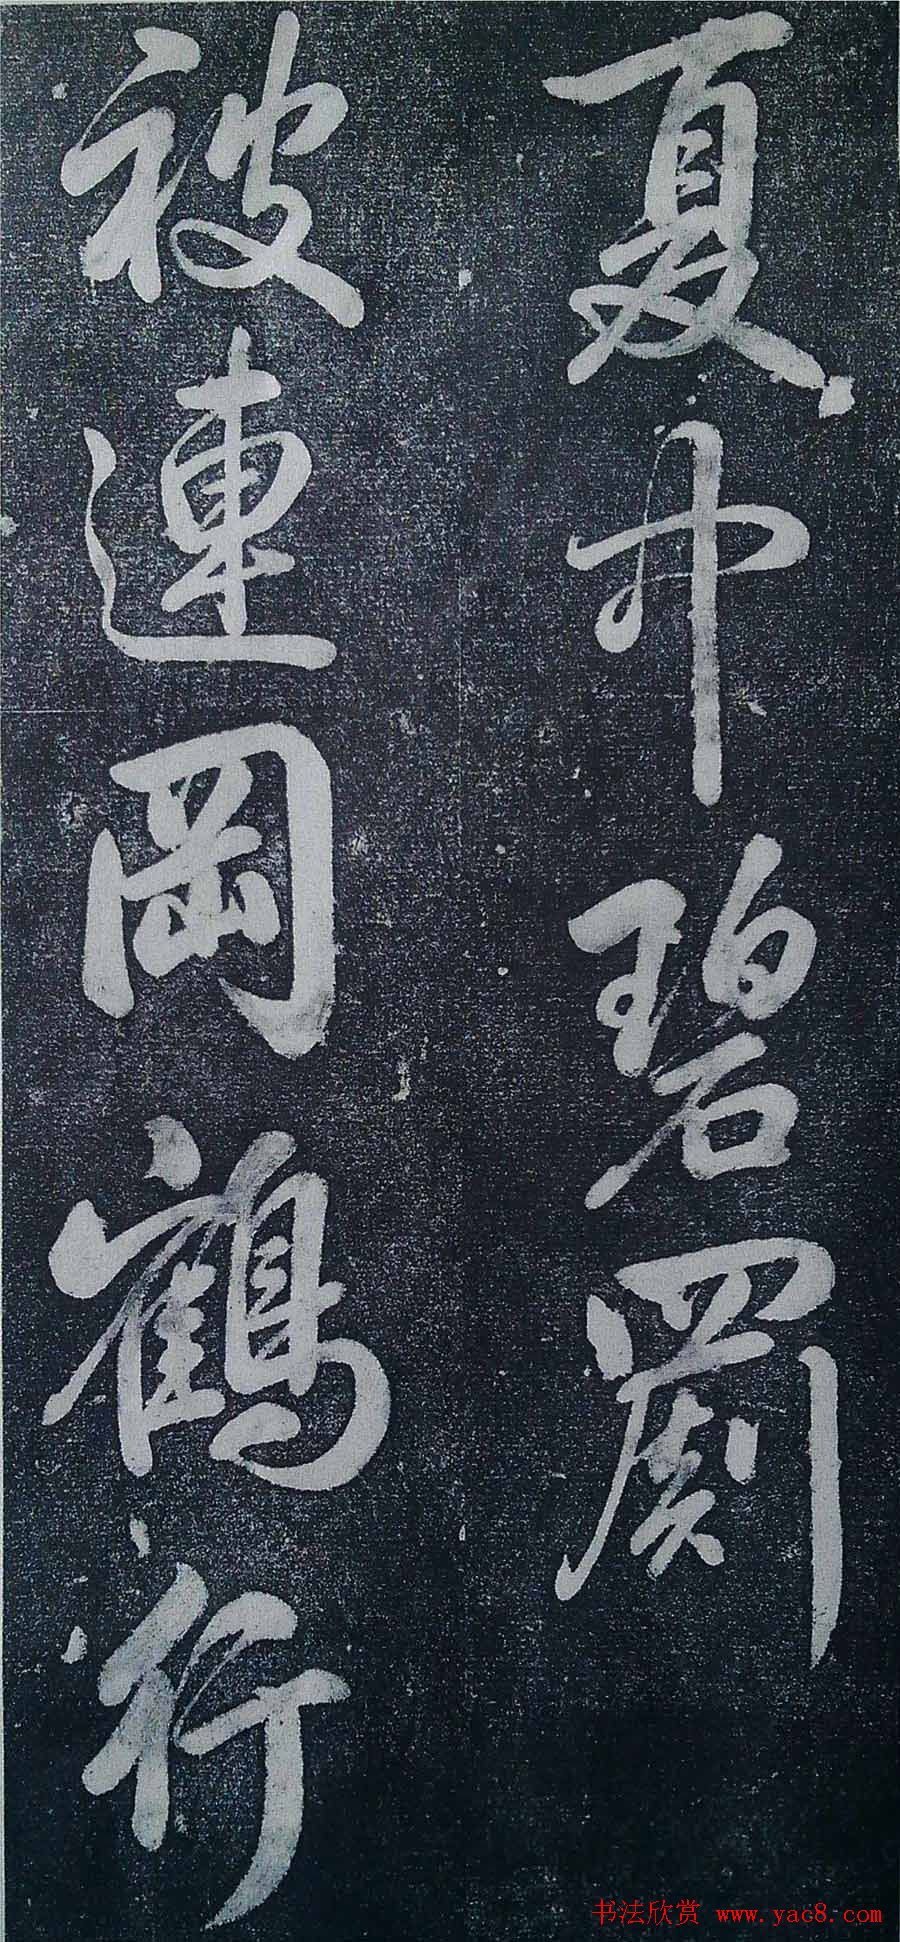 夏卉碧罽
被連岡鶴行
书法欣赏 www.yac8.com